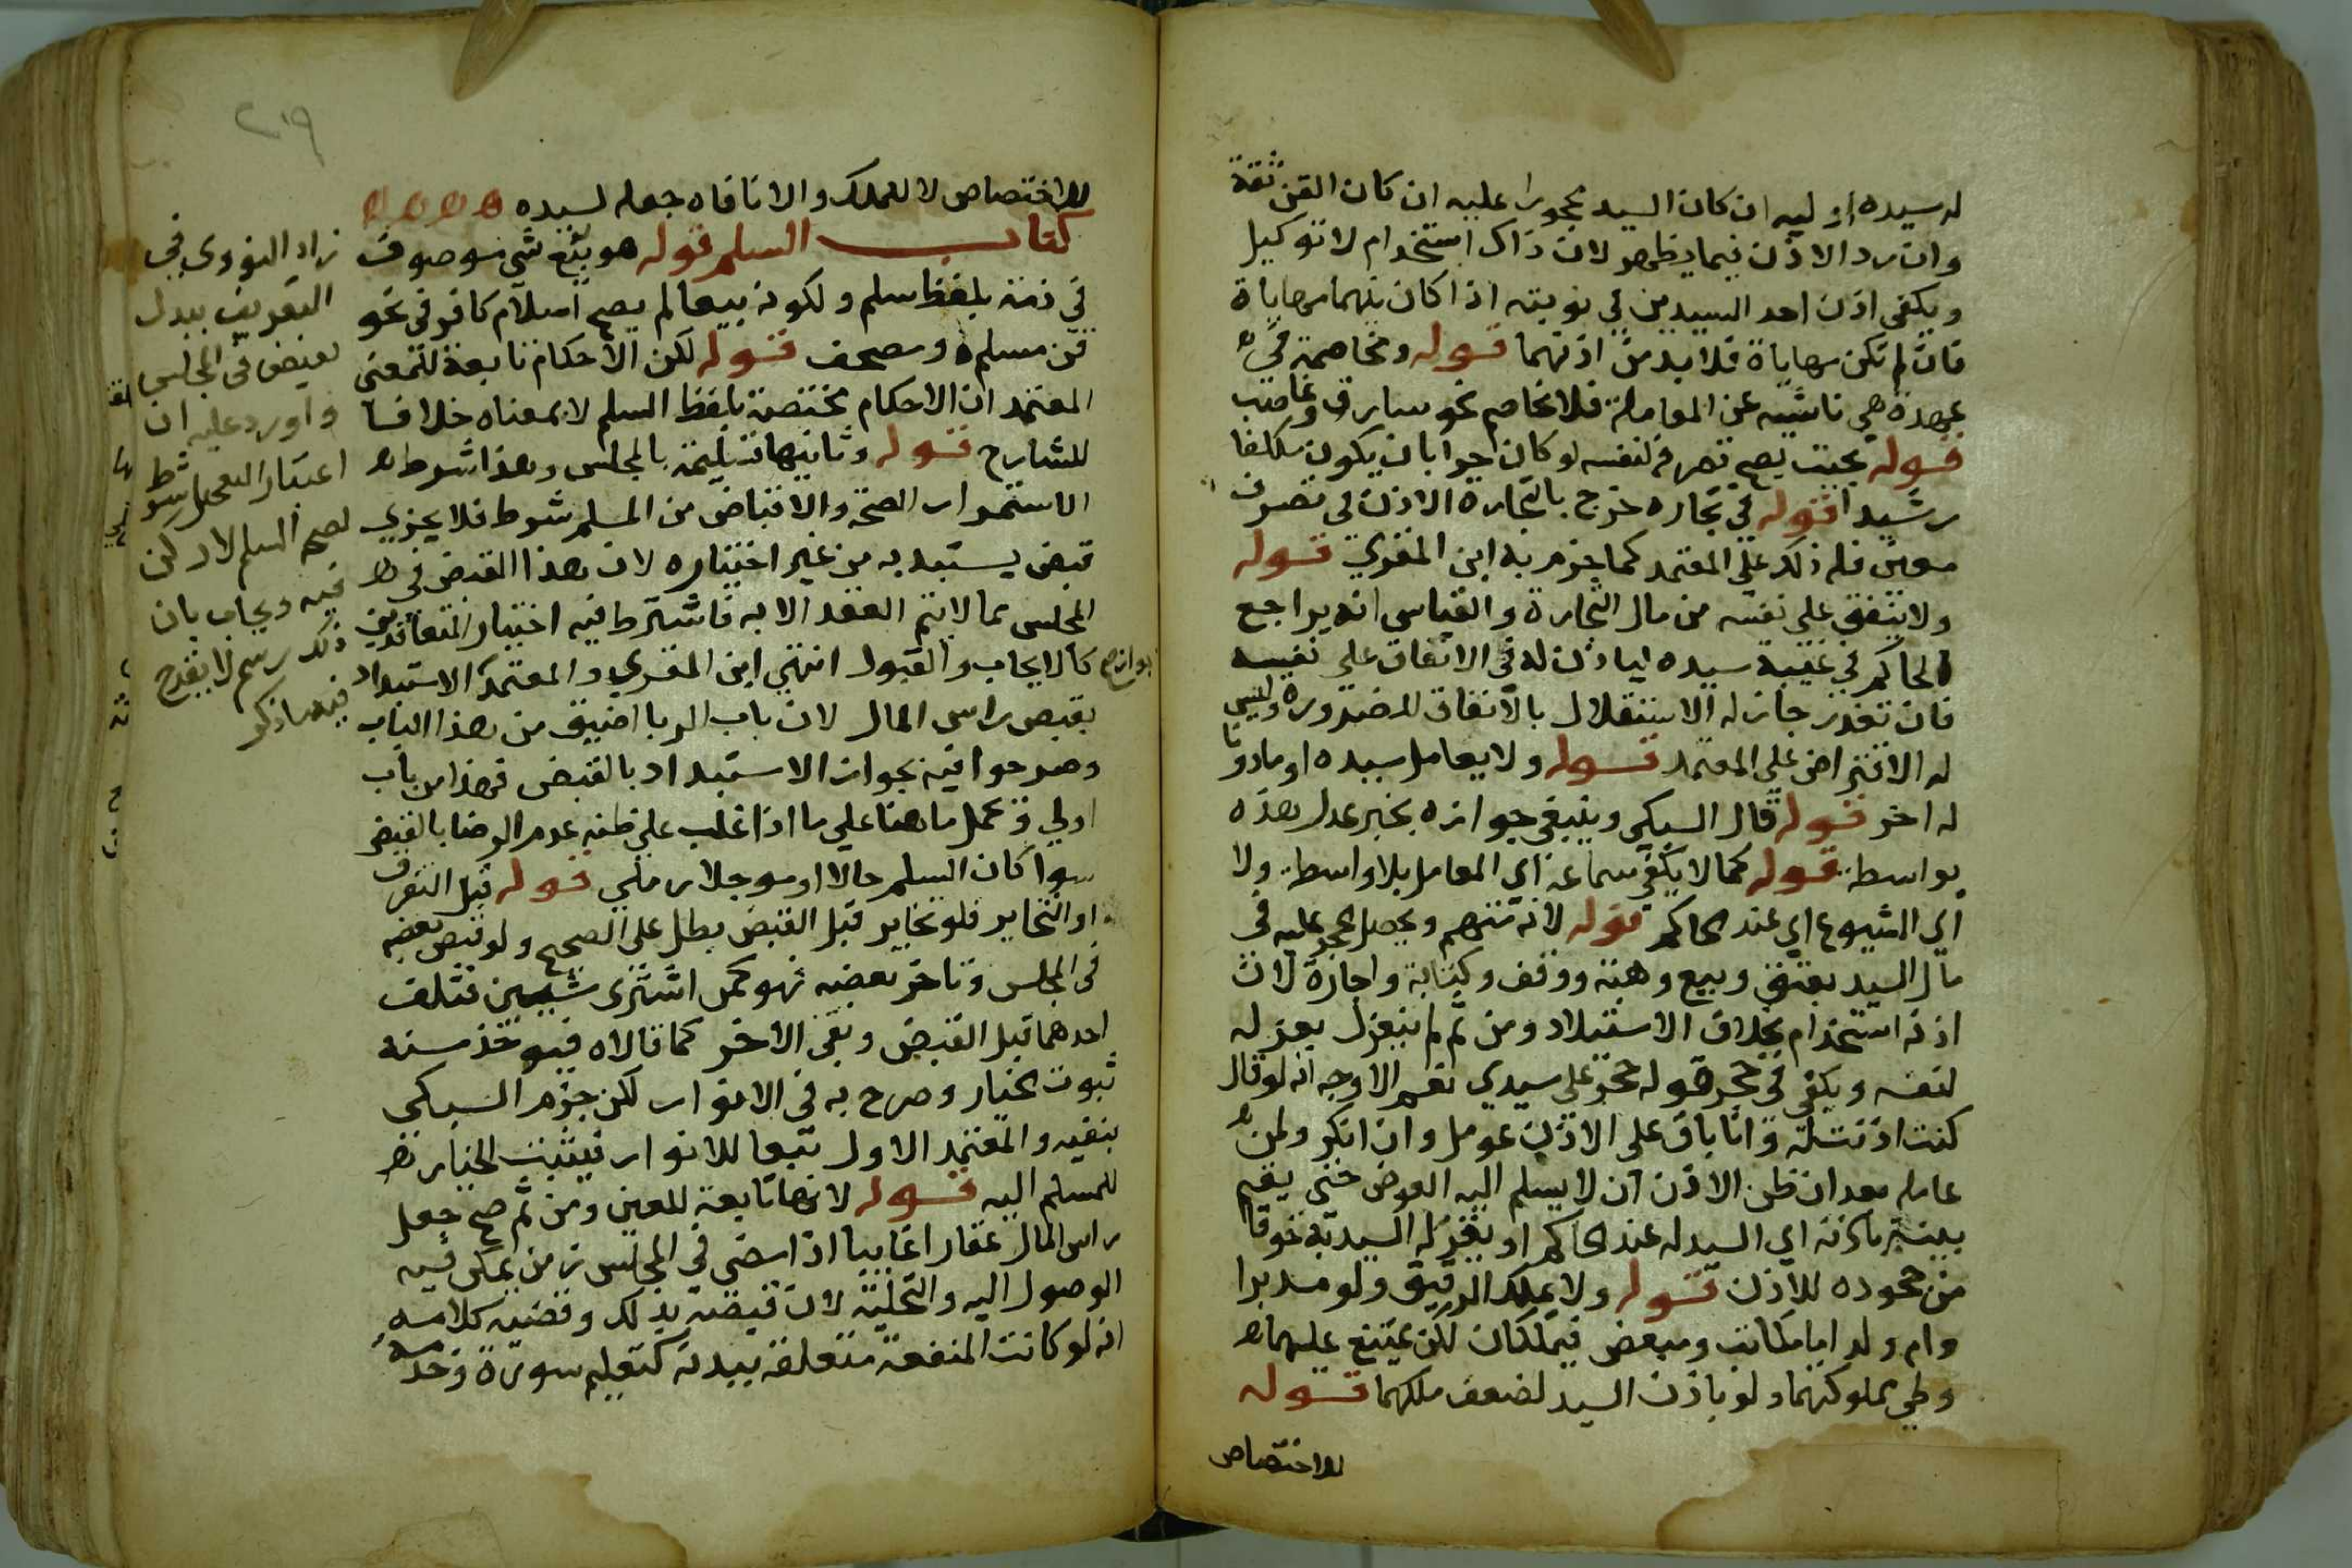 له سيده او ليه ان كان السيد محجورا عليه ان كان القن ثقة
وان رد الاذن فيما يظهر لان ذاك استخدام لا توكيل
ويكفي اذن احد السيدين في نوبته اذا كان بينهما مهاياة
فان لم تكن مهاياة فلا بد من اذنهما قوله ومخاصمة في
عهدة هي ناشئه عن المعاملة فلا يخاصم نحو سارق وغاصب
قوله بحيث يصح تصرفه لنفسه لو كان حرا بان يكون مكلفا
رشيدا قوله في تجاره خرج بالتجاره الاذن في تصرف
معين فله ذلك على المعتمد كما جزم به ابن المقري قوله
ولا ينفق على نفسه من مال التجارة والقياس انه يراجع
الحاكم في غيبة سيده لياذن له في الانفاق على نفسه
فان تعذر جاز له الاستقلال بالانفاق للضرورة وليس
له الاقتراض على المعتمد قوله ولا يعامل سيده او ماذونا
له اخر قوله قال السبكي وينبغي جوازه بخبر عدل بهذه
بواسطة قوله كما لا يكفي سماعه اي المعامل بلا واسطة ولا
اي الشيوع اي عند الحاكم قوله لانه متهم ويحصل الحجر عليه في
مال السيد بعتق وبيع وهبة ووقف وكتابة واجازة لان
اذنه استخدام بخلاف الاستيلاد ومن ثم لم ينعزل بعزله
لنفسه ويكفي في حجر قوله حجر على سيدي نعم الاوجه انه لو قال
كنت اذنت له وانا باق على الاذن عومل وان انكر ولمن
عامله بعد ان ظن الاذن ان لا يسلم اليه العوض حتى يقيم
بينة باذنه اي السيد له عند الحاكم او يقر له السيد به خوفا
من جحوده للاذن قوله ولا يملك الرقيق ولو مدبرا
وام ولد اما مكاتب ومبعض فيملكان لكن يمتنع عليهما
وطي مملوكتهما ولو باذن السيد لضعف ملكهما قوله
للاختصاص
٢١٩
للاختصاص لا للملك والا نافاه جعله لسيده
كتاب السلم قوله هو بيع شي موصوف
في ذمة بلفظ سلم ولكونه بيعا لم يصح اسلام كافر في نحو
قن مسلم ومصحف قوله لكن الاحكام تابعة للمعنى
المعتمد ان الاحكام مختصة بلفظ السلم لا بمعناه خلافا
للشارح قوله وثانيها تسليمه بالمجلس وهذا شرط
لاستمرار الصحة والاقباض من المسلم شرط فلا يجزي
قبض يستبد به من غير اختياره لان هذا القبض في
المجلس مما لا يتم العقد الا به فاشترط فيه اختيار المتعاقدين
كالايجاب والقبول انتهى ابن المقري والمعتمد الاستبداد
بقبض راس المال لان باب الربا اضيق من هذا الباب
وصرحوا فيه بجواز الاستبداد بالقبض فهذا من باب
اولى وحمل ما هنا على ما اذا غلب على ظنه عدم الرضا بالقبض
سوا كان السلم حالا او موجلا قوله قبل التفرق
او التخاير فلو تخاير قبل القبض بطل على الصحيح ولو قبض بعضه
في المجلس وتاخر بعضه فهو كمن اشترى شيين فتلف
احدهما قبل القبض وبقي الاخر كما قالاه فيوخذ منه
ثبوت الخيار وصرح به في الانوار لكن جزم السبكي
بنفيه والمعتمد الاول تبعا للانوار فيثبت الخيار
للمسلم اليه قوله لانها تابعة للعين ومن ثم صح جعل
راس المال عقارا غايبا اذا مضى في المجلس زمن يمكن فيه
الوصول اليه والتخلية لان قبضه بذلك وقضية كلامه
انه لو كانت المنفعة متعلقة ببدنه كتعليم سورة وخدمة
زاد النووي في
التعريف ببدل
يقبض في المجلس
واورد عليه ان
اعتبار التعجيل شرط
لصحة السلم لا ركن
فيه ويجاب بان
ذلك رسم لا يقدح
فيه ما ذكر